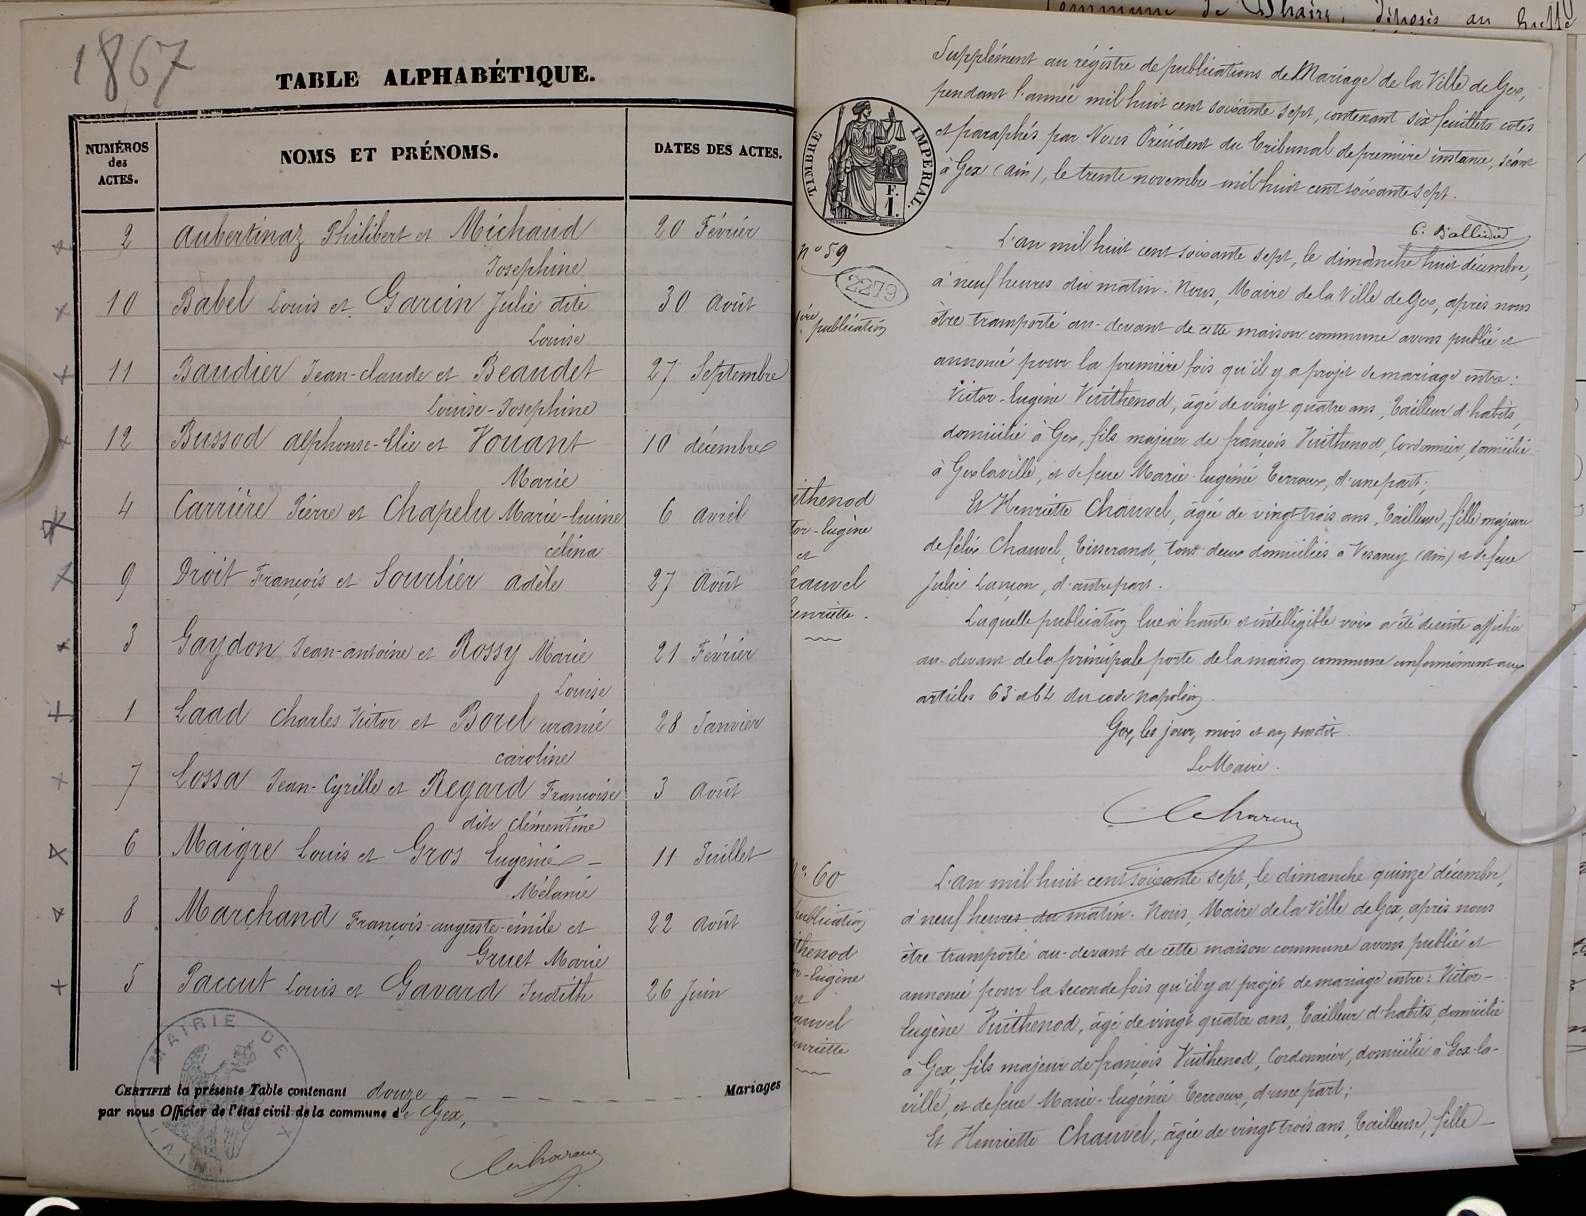 1867
TABLE ALPHABÉTIQUE.
NUMÉROS des ACTES.
NOMS ET PRÉNOMS.
DATES DES ACTES.
2 Aubertinaz Philibert et Michaud 20 Février
Josephine
10 Babel Louis et Garcin Julie dite 30 Août
Louise
11 Baudier Jean-Claude et Beaudet 27 Septembre
Louise-Josephine
12 Bussod Alphonse-Elie et Vouant 10 décembre
Marie
4 Carrière Pierre et Chapelu Marie- 6 avril
célina
9 Droit François et Sourlier adèle 27 Août
3 Gaydon Jean-antoine et Rossy Marie 21 Février
Louise
1 Laad Charles Victor et Borel uranie 28 Janvier
caroline
7 Lossa Jean-Cyrille et Regard Françoise 3 Août
dite clémentine
6 Maigre Louis et Gros Eugénie - 11 Juillet
Mélanie
8 Marchand François-auguste-émile et 22 Août
Gruet Marie
5 Paccut Louis et Gavard Judith 26 Juin
MAIRIE DE GEX
(AIN)
CERTIFIÉ la présente Table contenant douze Mariages
par nous Officier de l'état civil de la commune de Gex,
Commune de
déposés au Greffe
Supplément au régistre de publications de Mariage de la Ville de Gex,
pendant l'année mil huit cent soixante sept, contenant six feuillets cotés
et paraphés par Nous Président du Tribunal de première instance, séant
à Gex (Ain), le trente novembre mil huit cent soixante sept.
TIMBRE IMPERIAL.
F.
1.
2279
n° 59
1ère publication
ithenod
tor-Eugène
et
hauvel
enriette.
L'an mil huit cent soixante sept, le dimanche huit décembre,
à neuf heures du matin. Nous, Maire de la Ville de Gex, après nous
être transporté au-devant de cette maison commune avons publié et
annoncé pour la première fois qu'il y a projet de mariage entre:
Victor-Eugène Vuithenod, âgé de vingt quatre ans, Tailleur d'habits,
domicilié à Gex, fils majeur de françois Vuithenod, Cordonnier, domicilié
à Gex la ville, et de feue Marie-Eugénie Terroux, d'une part;
Et Henriette Chauvel, âgée de vingt trois ans, Tailleuse, fille majeure
de félix Chauvel, Tisserand, tous deux domiciliés à Vesancy (Ain) et de feue
Julie Lançon, d'autre part.
Laquelle publication lue à haute et intelligible voix a été de suite affichée
au-devant de la principale porte de la maison commune conformément aux
articles 63 et 64 du code napoléon.
Gex, les jour, mois et an susdits.
Le Maire.
n° 60
publication
ithenod
or-Eugène
et
auvel
enriette
L'an mil huit cent soixante sept, le dimanche quinze décembre,
à neuf heures du matin. Nous, Maire de la Ville de Gex, après nous
être transporté au-devant de cette maison commune avons publié et
annoncé pour la seconde fois qu'il y a projet de mariage entre: Victor-
Eugène Vuithenod, âgé de vingt quatre ans, Tailleur d'habits, domicilié
à Gex, fils majeur de françois Vuithenod, Cordonnier, domicilié à Gex-la-
ville, et de feue Marie-Eugénie Terroux, d'une part;
Et Henriette Chauvel, âgée de vingt trois ans, Tailleuse, fille-